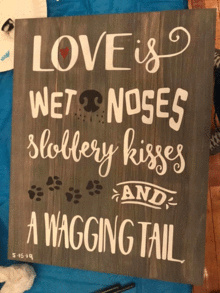 LOVE is
WET NOSES
slobbery kisses
AND
A WAGGING TAIL